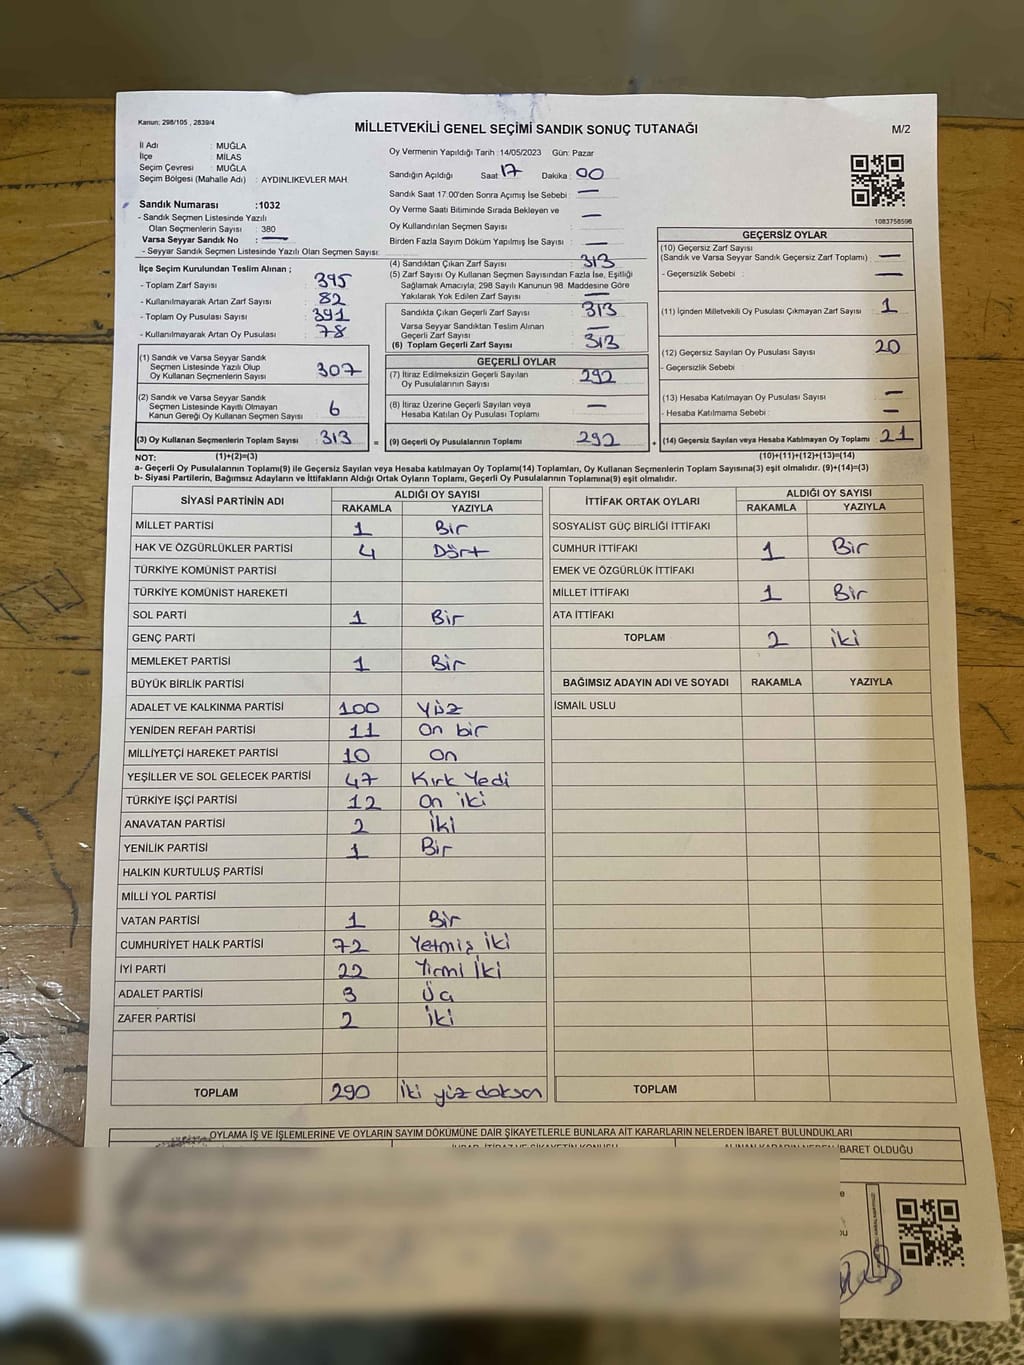 Kanun: 298/105 , 2839/4
MİLLETVEKİLİ GENEL SEÇİMİ SANDIK SONUÇ TUTANAĞI
M/2
İl Adı : MUĞLA
İlçe : MİLAS
Seçim Çevresi : MUĞLA
Seçim Bölgesi (Mahalle Adı) : AYDINLIKEVLER MAH
Sandık Numarası :1032
- Sandık Seçmen Listesinde Yazılı
Olan Seçmenlerin Sayısı : 380
Varsa Seyyar Sandık No : —
- Seyyar Sandık Seçmen Listesinde Yazılı Olan Seçmen Sayısı:
Oy Vermenin Yapıldığı Tarih :14/05/2023 Gün: Pazar
Sandığın Açıldığı Saat: 17 Dakika : 00
Sandık Saat 17.00'den Sonra Açımış İse Sebebi : —
Oy Verme Saati Bitiminde Sırada Bekleyen ve —
Oy Kullandırılan Seçmen Sayısı :
Birden Fazla Sayım Döküm Yapılmış İse Sayısı : —
1083758596
İlçe Seçim Kurulundan Teslim Alınan ;
- Toplam Zarf Sayısı : 395
- Kullanılmayarak Artan Zarf Sayısı : 82
- Toplam Oy Pusulası Sayısı : 391
- Kullanılmayarak Artan Oy Pusulası : 78
(1) Sandık ve Varsa Seyyar Sandık
Seçmen Listesinde Yazılı Olup
Oy Kullanan Seçmenlerin Sayısı 307
(2) Sandık ve Varsa Seyyar Sandık
Seçmen Listesinde Kayıtlı Olmayan
Kanun Gereği Oy Kullanan Seçmen Sayısı 6
(3) Oy Kullanan Seçmenlerin Toplam Sayısı 313 =
(4) Sandıktan Çıkan Zarf Sayısı : 313
(5) Zarf Sayısı Oy Kullanan Seçmen Sayısından Fazla İse, Eşitliği
Sağlamak Amacıyla, 298 Sayılı Kanunun 98. Maddesine Göre
Yakılarak Yok Edilen Zarf Sayısı : —
Sandıkta Çıkan Geçerli Zarf Sayısı : 313
Varsa Seyyar Sandıktan Teslim Alınan —
Geçerli Zarf Sayısı :
(6) Toplam Geçerli Zarf Sayısı : 313
GEÇERLİ OYLAR
(7) İtiraz Edilmeksizin Geçerli Sayılan 292
Oy Pusulalarının Sayısı :
(8) İtiraz Üzerine Geçerli Sayılan veya —
Hesaba Katılan Oy Pusulası Toplamı :
(9) Geçerli Oy Pusulalarının Toplamı 292 +
GEÇERSİZ OYLAR
(10) Geçersiz Zarf Sayısı
(Sandık ve Varsa Seyyar Sandık Geçersiz Zarf Toplamı) : —
- Geçersizlik Sebebi : —
(11) İçinden Milletvekili Oy Pusulası Çıkmayan Zarf Sayısı : 1
(12) Geçersiz Sayılan Oy Pusulası Sayısı : 20
- Geçersizlik Sebebi :
(13) Hesaba Katılmayan Oy Pusulası Sayısı : —
- Hesaba Katılmama Sebebi : —
(14) Geçersiz Sayılan veya Hesaba Katılmayan Oy Toplamı : 21
NOT: (1)+(2)=(3) (10)+(11)+(12)+(13)=(14)
a- Geçerli Oy Pusulalarının Toplamı(9) ile Geçersiz Sayılan veya Hesaba katılmayan Oy Toplamı(14) Toplamları, Oy Kullanan Seçmenlerin Toplam Sayısına(3) eşit olmalıdır. (9)+(14)=(3)
b- Siyasi Partilerin, Bağımsız Adayların ve İttifakların Aldığı Ortak Oyların Toplamı, Geçerli Oy Pusulalarının Toplamına(9) eşit olmalıdır.
SİYASİ PARTİNİN ADI ALDIĞI OY SAYISI
RAKAMLA YAZIYLA
MİLLET PARTİSİ 1 Bir
HAK VE ÖZGÜRLÜKLER PARTİSİ 4 Dört
TÜRKİYE KOMÜNİST PARTİSİ
TÜRKİYE KOMÜNİST HAREKETİ
SOL PARTİ 1 Bir
GENÇ PARTİ
MEMLEKET PARTİSİ 1 Bir
BÜYÜK BİRLİK PARTİSİ
ADALET VE KALKINMA PARTİSİ 100 Yüz
YENİDEN REFAH PARTİSİ 11 On bir
MİLLİYETÇİ HAREKET PARTİSİ 10 On
YEŞİLLER VE SOL GELECEK PARTİSİ 47 Kırk Yedi
TÜRKİYE İŞÇİ PARTİSİ 12 On iki
ANAVATAN PARTİSİ 2 İki
YENİLİK PARTİSİ 1 Bir
HALKIN KURTULUŞ PARTİSİ
MİLLİ YOL PARTİSİ
VATAN PARTİSİ 1 Bir
CUMHURİYET HALK PARTİSİ 72 Yetmiş İki
İYİ PARTİ 22 Yirmi İki
ADALET PARTİSİ 3 Üç
ZAFER PARTİSİ 2 İki
TOPLAM 290 İki yüz doksan
İTTİFAK ORTAK OYLARI ALDIĞI OY SAYISI
RAKAMLA YAZIYLA
SOSYALİST GÜÇ BİRLİĞİ İTTİFAKI
CUMHUR İTTİFAKI 1 Bir
EMEK VE ÖZGÜRLÜK İTTİFAKI
MİLLET İTTİFAKI 1 Bir
ATA İTTİFAKI
TOPLAM 2 iki
BAĞIMSIZ ADAYIN ADI VE SOYADI RAKAMLA YAZIYLA
İSMAİL USLU
TOPLAM
OYLAMA İŞ VE İŞLEMLERİNE VE OYLARIN SAYIM DÖKÜMÜNE DAİR ŞİKAYETLERLE BUNLARA AİT KARARLARIN NELERDEN İBARET BULUNDUKLARI
İBARET OLDUĞU